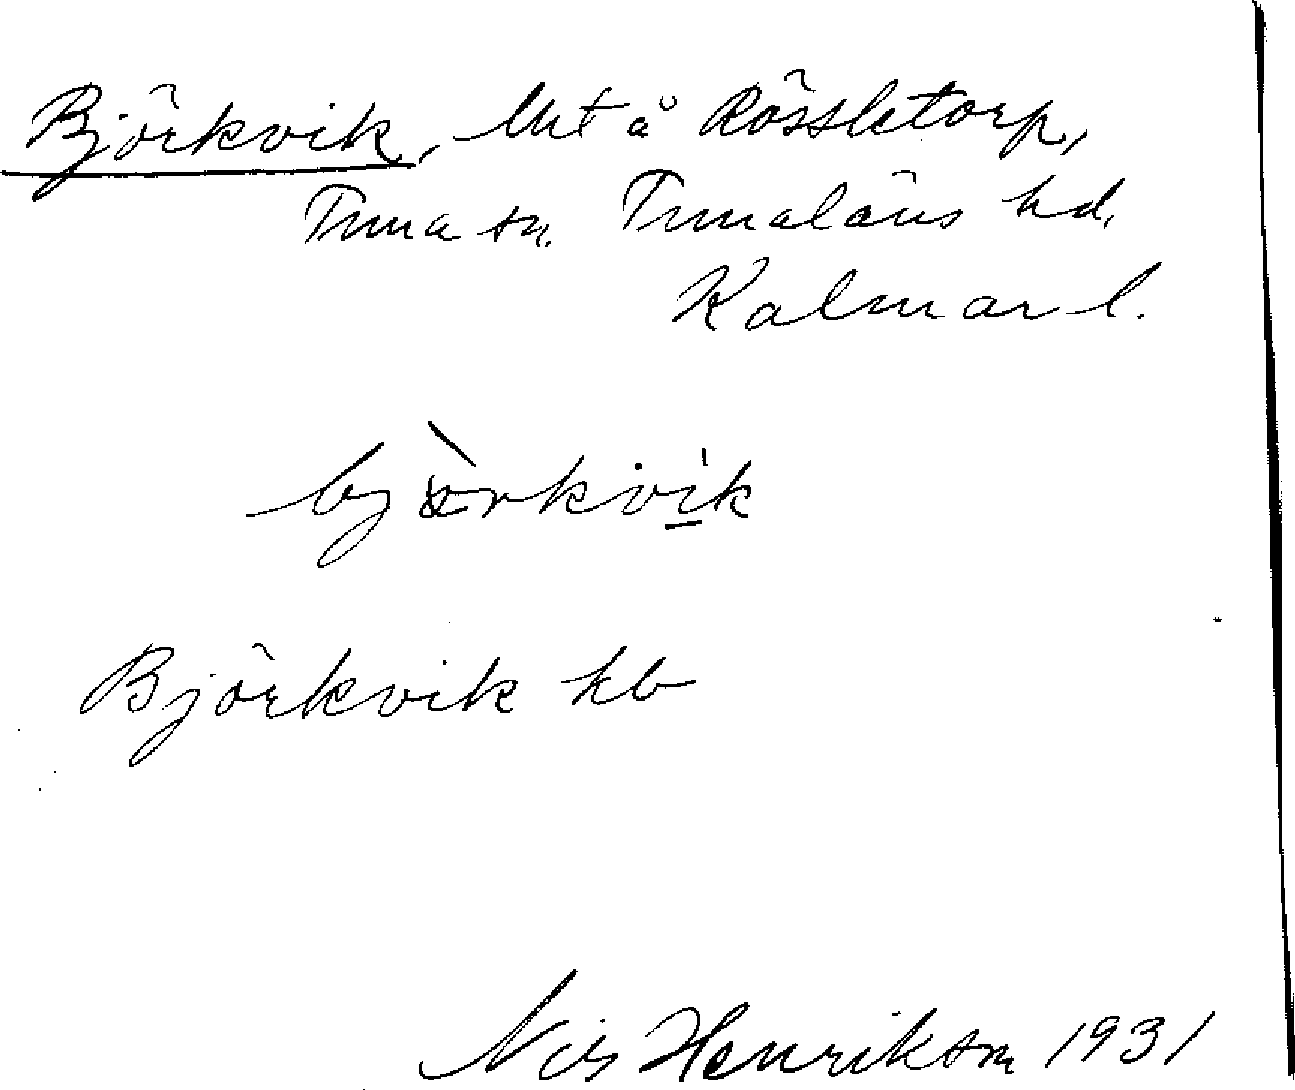 Björkvik, lht å Rössletorp,
Tuna sn. Tunaläns hd.
Kalmar l.
bjòrkvik
Björkvik kb
Nils Henrikson 1931